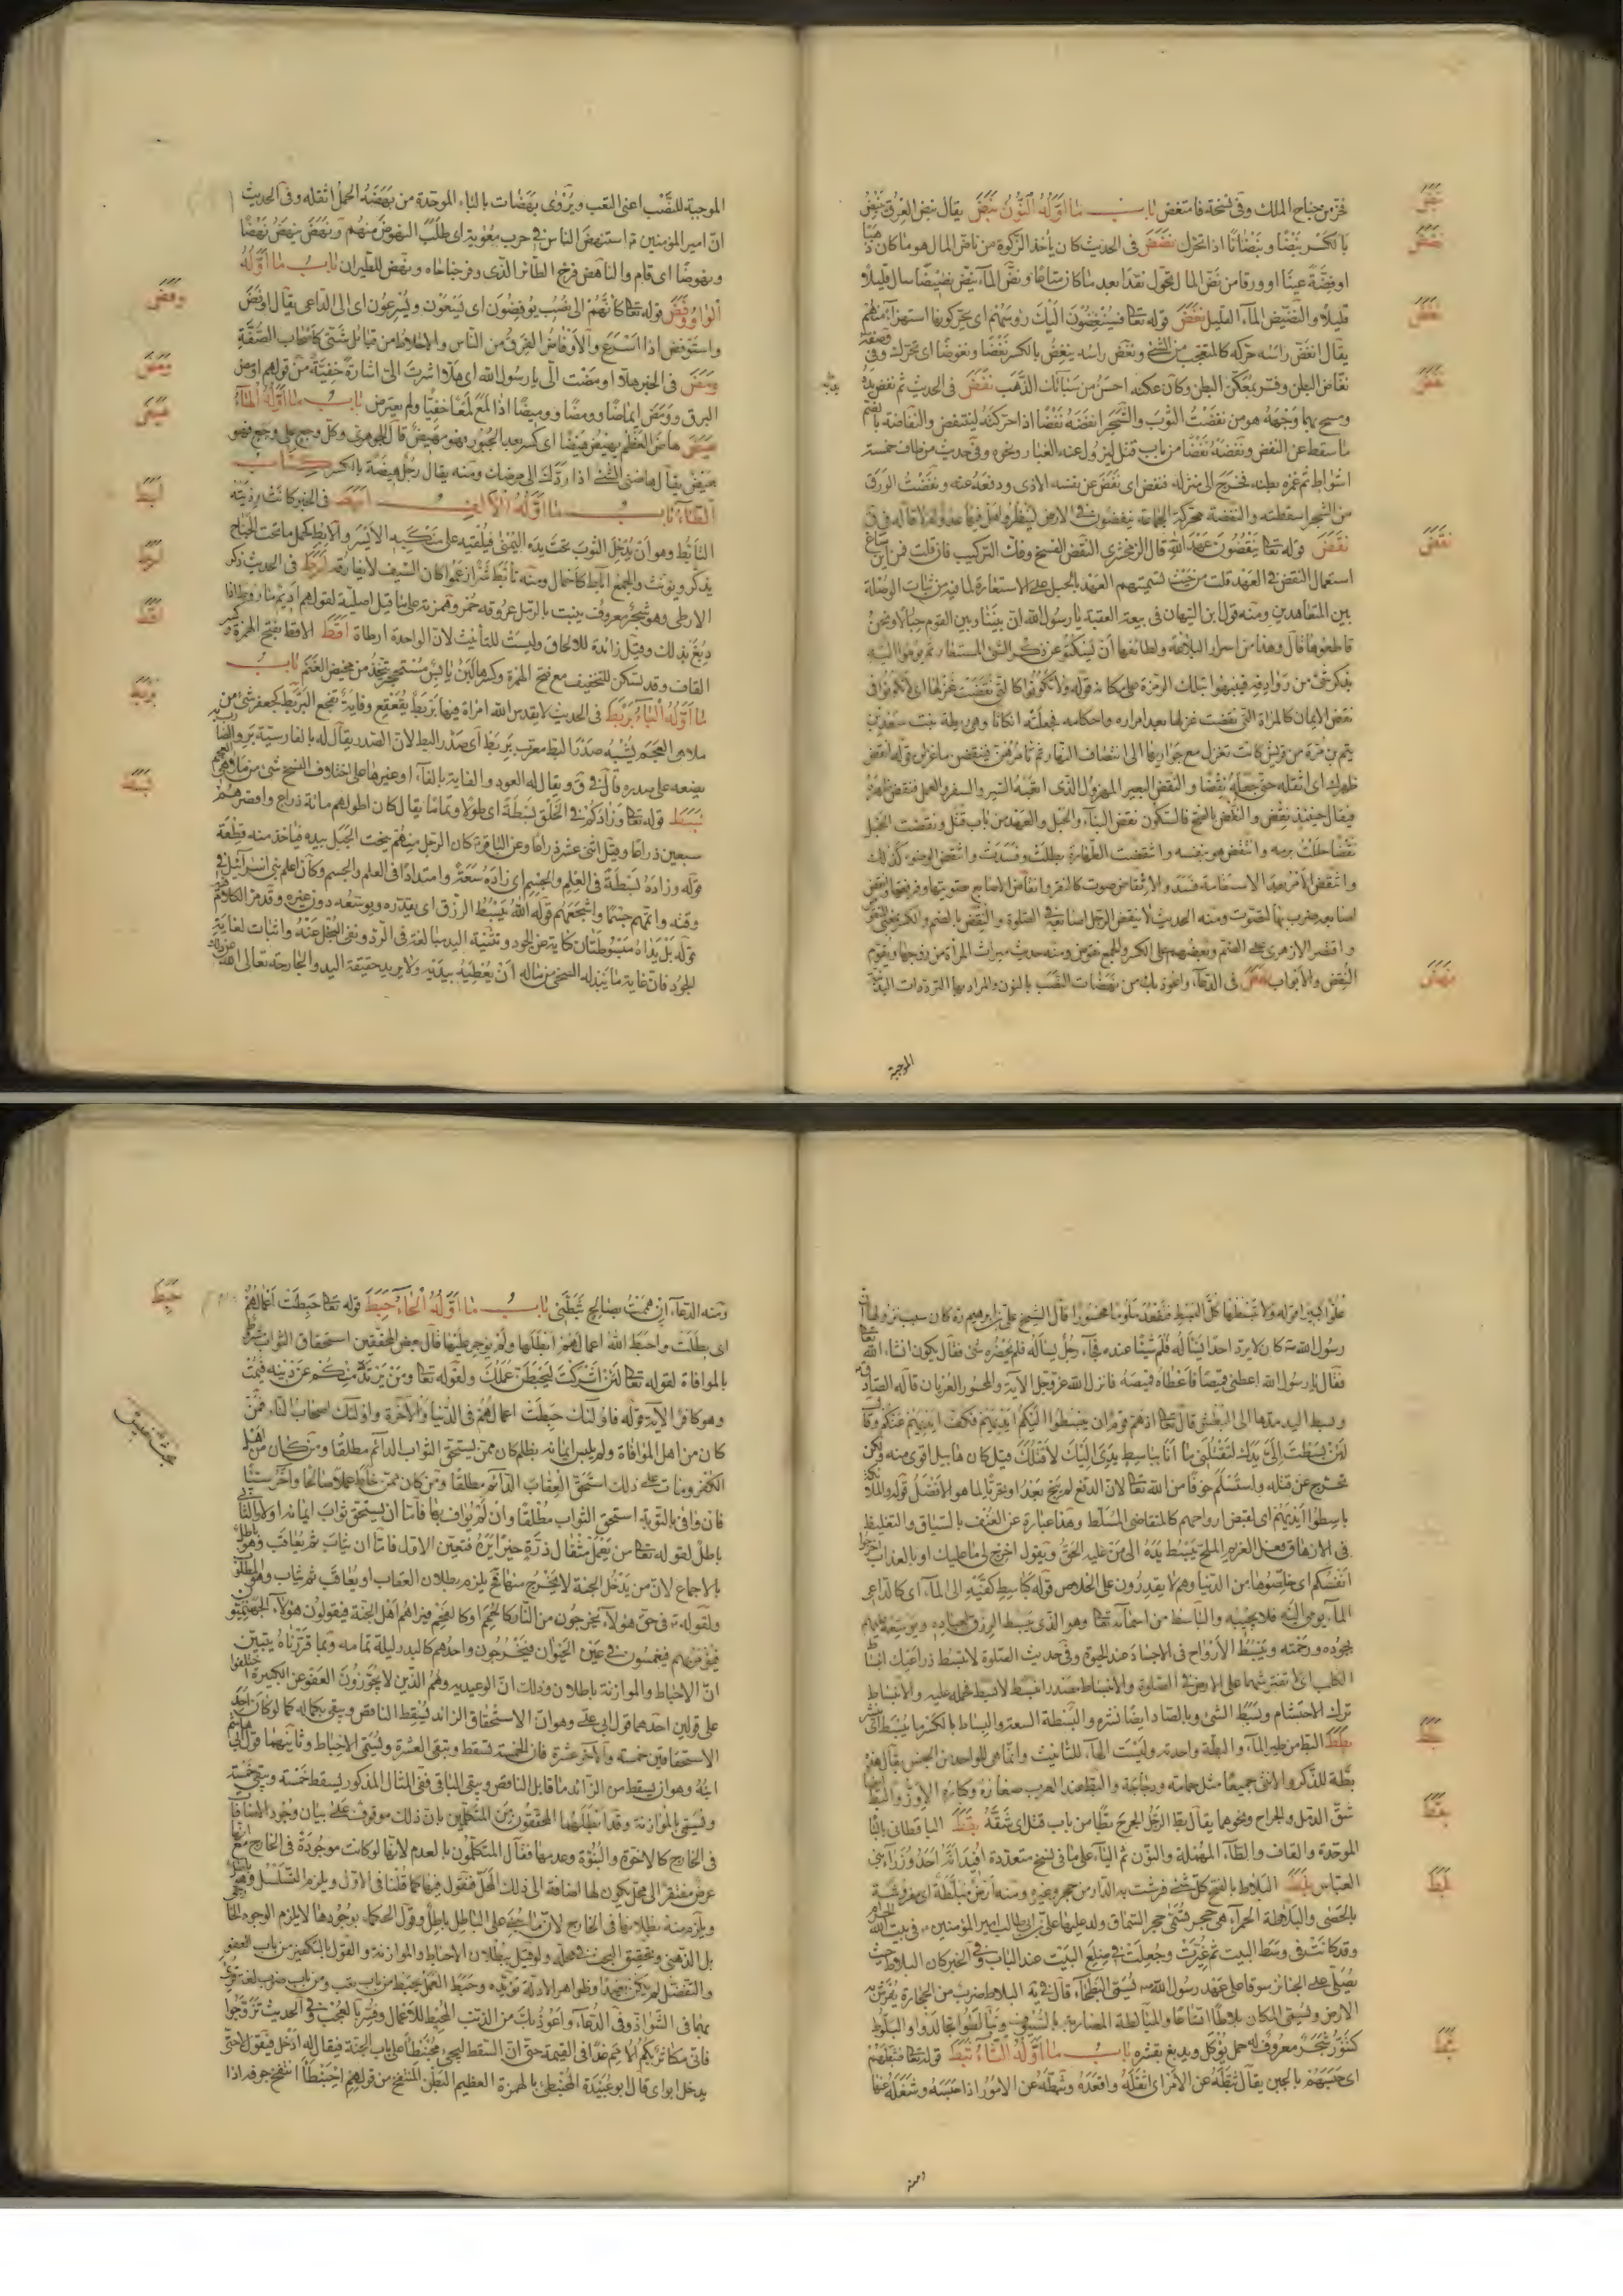 نبض
فخر من جناح الملك وفى نسخة فامتغض باب ما اوّله النّون نبض يقال نبض العرق ينبض
نضض
بالكسر نبضًا ونبضانًا اذا تحرّك نضض فى الحديث كان يأخذ الزكوة من ناضّ المال هو ما كان ذهبًا
او فضّة عينًا او ورقا من نضّ المال تحوّل نقدًا بعد ما كان متاعًا ونضّ الماء ينضّ نضيضًا سال قليلًا
نغض
قليلًا والنضيض الماء القليل نغض قوله تعالى فسينغضون اليك رؤسهم اى يحرّكونها استهزاء منهم
يقال انغض رأسه حركه كالمتعجب من الشئ ونغض راسه ينغض بالكسر نغضًا ونغوضًا اى تحرّك وفى
نفض
البطن وكان عكنه احسن من سبائك الذّهب نفض فى الحديث ثم نفض يده
ومسح بهما وجهه هو من نفضت الثوب والشجر انفضه نفضًا اذا حركته لينتفض والنفاضة بالضم
ما سقط عن النفض ونفضه نفضًا من باب قتل ليزول عنه الغبار ونحوه وفى حديث من طاف خمسة
اشواط ثم غمزه بطنه فخرج الى منزله فنفض اى نفض عن نفسه الاذى ودفعه عنه ونفضت الورق
من الشجر اسقطته والنفضة محركة الجماعة ينفضون فى الارض لينظروا هل فيها عدو ام لا قاله فى ق
نقض
نقض قوله تعالى ينقضون عهد الله قال الزمخشرى النقض الفسخ وفك التركيب فان قلت فمن اين ساغ
استعمال النقض فى العهد قلت من حيث تسميتهم العهد بالحبل على الاستعارة لما فيه من ثبات الوصلة
بين المتعاهدين ومنه قول ابن التيهان فى بيعة العقبة يا رسول الله ان بيننا وبين القوم حبالا ونحن
قاطعوها قال وهذا من اسرار البلاغة ولطائفها ان يسكتوا عن ذكر الشئ المستعار ثم يرمزوا اليه
بذكر شئ من روادفه فينبهوا بتلك الرمزة على مكانه قوله ولا تكونوا كالتى نقضت غزلها اى لا تكونوا فى
نقض الايمان كالمراة التى نقضت غزلها بعد امراره واحكامه فجعلته انكاثا وهى ريطة بنت سعد بن
تيم بن مرة من قريش كانت تغزل مع جواريها الى انتصاف النهار ثم تامرهن فينقضن ما غزلن قوله انقض
ظهرك اى اثقله حتى جعله نقضًا والنقض البعير المهزول الذى اتعبه السير والسفر والعمل فنقض لحمه
فيقال حينئذ نقض والنقض بالفتح فالسكون نقض البناء والحبل والعهد من باب قتل ونقضت الحبل
نقضًا حللت برمه وانتقض هو بنفسه وانتقضت الطهارة بطلت وفسدت وانتقض الوضوء كذلك
وانتقض الأمر بعد الاستقامة فسد
اصابعه ضرب بها لتصوت ومنه الحديث لا ينقض الرجل اصابعه فى الصلوة والنقض بالضم والكسر بمعنى المنقوض
واقتصر الازهرى على الضم وبعضهم على الكسر والجمع نقوض ومنه حديث ميراث المرأة من زوجها ويقوم
نهض
النقض والأبواب نهض فى الدعاء واعوذ بك من نهضات النصب بالنون والمراد بها الترددات البدنية
الموجبة
الموجبة للنّصب اعنى التعب ويروى بهضات بالباء الموحّدة من بهضه الحمل اثقله وفى الحديث
انّ امير المؤمنين ع استنهض الناس فى حرب معوية اى طلب النهوض منهم ونهض ينهض نهضًا
ونهوضًا اى قام والناهض فرخ الطائر الذى وفر جناحاه ونهض للطيران باب ما اوّله
وفض
الواو وفض قوله تعالى كأنّهم الى نصب يوفضون اى فيتبعون ويسرعون اى الى الداعى يقال اوفض
واستوفض اذا اسرع والأوفاض الفرق من الناس والاخلاط من قبائل شتى كاصحاب الصّفّة
ومض
ومض فى الخبر هلّا اومضت الىّ يا رسول الله اى هلّا اشرت الىّ اشارة خفيّة من قولهم اومض
البرق وومض ايماضًا وومضًا ووميضًا اذا لمع لمعًا خفيًا ولم يعترض باب ما اوّله الهاء
هيض
هيض هاض العظم يهيضه هيضًا اى كسر بعد الجبور فهو مهيض قال الجوهرى وكل وجع على وجع فهو
هيض يقال هاضنى الشئ اذا ردّك الى مرضك ومنه يقال رجل هيضة بالكسر كتاب
ابط
الطاء باب ما اوّله الألف ابط فى الخبر كانت رديته
التأبّط وهو أن يدخل الثوب تحت يده اليمنى فيلقيه على منكبه الأيسر والابط كحمل ما تحت الجناح
ارط
يذكر ويؤنث والجمع آباط كاحمال ومنه تأبّط شرًّا زعموا كان السّيف لا يفارقه ارط فى الحديث ذكر
الارطى وهو شجر معروف ينبت بالرمل عروقه حمر وهمزته على ما قيل اصلية لقولهم اديم مأروط اذا
اقط
دبغ بذلك وقيل زائدة للالحاق وليست للتأنيث لانّ الواحدة ارطاة اقط الاقط بفتح الهمزة وكسر
القاف وقد تسكن للتخفيف مع فتح الهمزة وكسرها لبن يابس مستحجر يتّخذ من مخيض الغنم باب
بربط
ما اوّله الباء بربط فى الحديث لا يقدس الله امة فيها بربط يقعقع وفاية تفجع البربط كجعفر شئ من
ملاهى العجم يشبه صدر البط معرّب بربط اى صدر البط لانّ الصدر يقال له بالفارسية بر والضارب
يضعه على صدره قال فى ق ويقال له العود
بسط
بسط قوله تعالى وزادكم فى الخلق بسطة اى طولًا وتمامًا يقال كان اطولهم مائة ذراع واقصرهم
سبعين ذراعًا وقيل اثنى عشر ذراعًا وعن الباقر ع كان الرجل منهم ينحت الجبل بيده فيأخذ منه قطعة
قوله وزاده بسطة فى العلم والجسم اى زاده سعة وامتدادًا فى العلم والجسم وكان اعلم بنى اسرائيل فى
وقته واتمهم جسمًا واشجعهم قوله الله يبسط الرزق اى يقدّره ويوسّعه دون غيره وقد مرّ الكلام
قوله بل يداه مبسوطتان كناية عن الجود وتثنية اليد مبالغة فى الرد ونفى البخل عنه واثبات لغاية
الجود فانّ غاية ما يبذله السخى من ماله أن يعطيه بيديه ولا يريد حقيقة اليد والجارحة تعالى الله عن ذلك
علوًّا كبيرًا قوله ولا تبسطها كلّ البسط فتقعد ملومًا محسورًا قال الشيخ على بن ابرهيم ره كان سبب نزولها ان
رسول الله ص كان لا يردّ احدًا يسأله شيئًا عنده فجاءه رجل يسأله فلم يحضره شئ فقال يكون انشاء الله
فقال يا رسول الله اعطنى قميصك فاعطاه قميصه فانزل الله عز وجل الآية والمحسور العريان قاله الصادق
وبسط اليد مدّها الى البطش قال تعالى اذ همّ قوم ان يبسطوا اليكم ايديهم فكفّ ايديهم عنكم وقال
لئن بسطت الىّ يدك لتقتلنى ما أنا بباسط يدى اليك لأقتلك قيل كان هابيل اقوى منه ولكن
تحرّج عن قتله واستسلم خوفًا من الله تعالى لانّ الدفع لم يبح بعد او تحريًا لما هو الأفضل قوله والملائكة
باسطوا أيديهم اى لقبض ارواحهم كالمتقاضى المسلّط وهذا عبارة عن العنف بالسياق والتغليظ
فى الازهاق فعل الغريم الملحّ يبسط يده الى من عليه الحق ويقول اخرج لى ما عليك او بالعذاب اخرجوا
انفسكم اى خلّصوها من الدنيا وهم لا يقدرون على الخلاص قوله كباسط كفّيه الى الماء اى كالداعى
الماء يومى اليه فلا يجيبه والباسط من اسمائه تعالى وهو الذى يبسط الرزق لعباده ويوسّعه عليهم
بجوده ورحمته ويبسط الأرواح فى الاجساد عند الحيوة وفى حديث الصلوة لا تبسط ذراعيك انبساط
الكلب اى لا تفترشهما على الارض فى الصلوة والانبساط مصدر انبسط لا بسط فحمله عليه والانبساط
ترك الاحتشام وبسط الشئ وبالصاد ايضًا نشره والبسطة السعة والبساط بالكسر ما يبسط اى ينشر
بطط
بطط البط من طير الماء والبطّة واحدته وليست الهاء للتأنيث وانما هى للواحد من الجنس يقال هذه
بطّة للذكر والانثى جميعًا مثل حمامة ودجاجة والبط عند العرب صغاره وكباره الإوزّ والبط ايضًا
بقط
شقّ الدمل والجراح ونحوهما يقال بطّ الرجل الجرح بطًّا من باب قتل اى شقّه بقط الباقطانى بالباء
الموحّدة والقاف والطاء المهملة والنون ثم الياء على ما فى نسخ متعددة
بلط
العباس بلط البلاط بالفتح كلّ شئ فرشت به الدار من حجر وغيره ومنه ارض مبلّطة اى مفروشة
بالحصى والبلاطة الحمراء هى حجر
وقد كانت فى وسط البيت
يصلّى على الجنائز سوقًا على عهد رسول الله ص يسمّى البطحاء قال فى ية البلاط ضرب من الحجارة يفرش به
الارض ويسمّى المكان بلاطًا اتساعًا والمبالطة المضاربة بالسيوف وتبالطوا تجالدوا والبلّوط
ثبط
كتنّور شجر معروف له حمل يؤكل ويدبغ بقشره باب ما اوّله الثاء ثبط قوله تعالى فثبّطهم
اى حبسهم بالجبن يقال ثبّطه عن الأمر اى اثقله واقعده وثبّطه عن الامور اذا حبسه وشغله عنها
ومنه
حبط
ومنه الدعاء ان هممت بصالح ثبّطنى باب ما اوّله الحاء حبط قوله تعالى حبطت أعمالهم
اى بطلت واحبط الله اعمالهم ابطلها ولم يوجر عليها قال بعض المحققين استحقاق الثواب مشروط
بالموافاة لقوله تعالى لئن أشركت ليحبطنّ عملك ولقوله تعالى ومن يرتدد منكم عن دينه فيمت
وهو كافر الآية قوله فاولئك حبطت اعمالهم فى الدنيا والآخرة واولئك اصحاب النار فمن
كان من اهل الموافاة ولم يلبس ايمانه بظلم كان ممن يستحق الثواب الدائم مطلقًا ومن كان من اهل
الكفر ومات على ذلك استحق العقاب الدائم مطلقًا ومن كان ممن خلط عملًا صالحًا وآخر سيئًا
فان وافى بالتوبة استحق الثواب مطلقًا وان لم يواف بها فامّا أن يستحق ثواب ايمانه اولا والثانى
باطل لقوله تعالى من يعمل مثقال ذرّة خيرًا يره فتعيّن الاول فامّا ان يثاب ثم يعاقب وهو باطل
بالاجماع لانّ من يدخل الجنة لا يخرج منها فح يلزم بطلان العقاب او يعاقب ثم يثاب وهو المطلوب
ولقوله ع فى حق هؤلاء يخرجون من النار كالحمم او كالفحم فيراهم أهل الجنة فيقولون هؤلاء الجهنميون
فيؤمر بهم فيغمسون فى عين الحيوان فيخرجون واحدهم كالبدر ليلة تمامه وبما قرّرناه يتبيّن
انّ الإحباط والموازنة باطلان وذلك انّ الوعيدية وهم الذين لا يجوّزون العفو عن الكبيرة اختلفوا
على قولين احدهما قول ابى على وهو انّ الاستحقاق الزائد يسقط الناقص ويبقى بكماله كما لو كان احد
الاستحقاقين خمسة والآخر عشرة فان الخمسة تسقط وتبقى العشرة ويسمّى الإحباط وثانيهما قول ابى هاشم
ابنه وهو ان يسقط من الزائد ما قابل الناقص ويبقى الباقى ففى المثال المذكور يسقط خمسة ويبقى خمسة
ويسمّى بالموازنة وقد ابطلهما المحققون من المتكلمين بانّ ذلك موقوف على بيان وجود الاضافات
فى الخارج كالاخوة والبنوّة وعدمها فقال المتكلمون بالعدم لانّها لو كانت موجودة فى الخارج مع انها
عرض مفتقر الى محل يكون لها اضافة الى ذلك المحل فنقول فيها كما قلنا فى الأول ويلزم التسلسل وهو باطل
ويلزم منه بطلانها فى الخارج لانّ ما يبنى على الباطل باطل وقول الحكماء بوجودها لا يلزم الوجود الخارجى
بل الذهنى وتحقيق البحث فى محله ولو قيل ببطلان الاحباط والموازنة والقول بالتكفير من باب العفو
والتفضّل لم يكن بعيدًا وظواهر الادلة تؤيّده وحبط العمل يحبط من باب تعب ومن باب ضرب لغة
بها فى الشواذّ وفى الدعاء واعوذ بك من الذنب المحبط للأعمال وفسّر بالعجب وفى الحديث تزوّجوا
فانّى مكاثر بكم الأمم غدًا فى القيمة حتى انّ السقط ليجئ محبنطئًا على باب الجنة فيقال له ادخل فيقول لا حتى
يدخل ابواى قال ابو عبيدة المحبنطئ بالهمزة العظيم البطن المنتفخ من قولهم احبنطأ انتفخ جوفه اذا